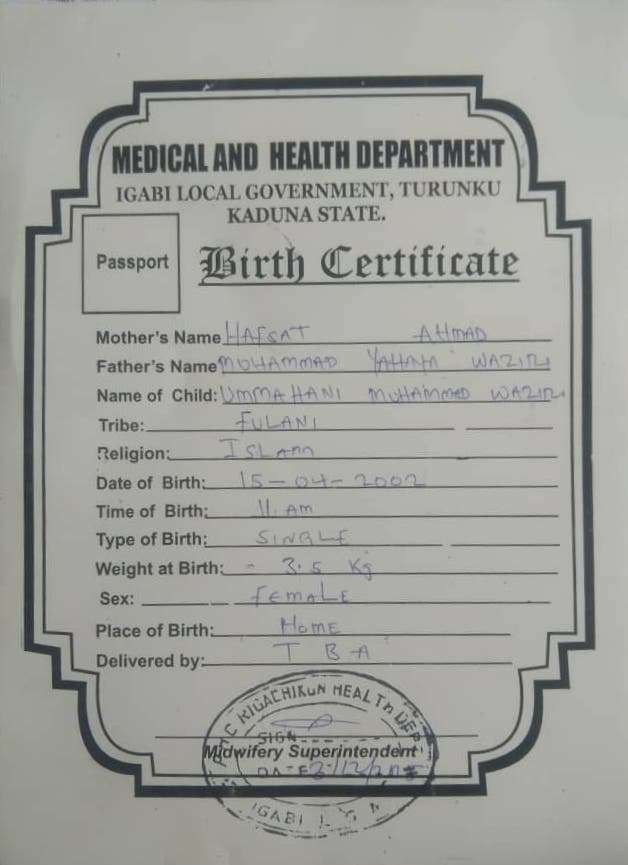 MEDICAL AND HEALTH DEPARTMENT
IGABI LOCAL GOVERNMENT, TURUNKU
KADUNA STATE.
Passport
Birth Certificate
Mother's Name HAFSAT AHMAD
Father's Name MUHAMMAD YAHAYA WAZIRI
Name of Child: UMMAHANI MUHAMMAD WAZIRI
Tribe: FULANI
Religion: ISLAM
Date of Birth: 15-04-2002
Time of Birth: 11. AM
Type of Birth: SINGLE
Weight at Birth: - 3.5 Kg
Sex: FEMALE
Place of Birth: HOME
Delivered by: T B A
HEALTH DEPT
SIGN
Midwifery Superintendent
DATE
IGABI L G A